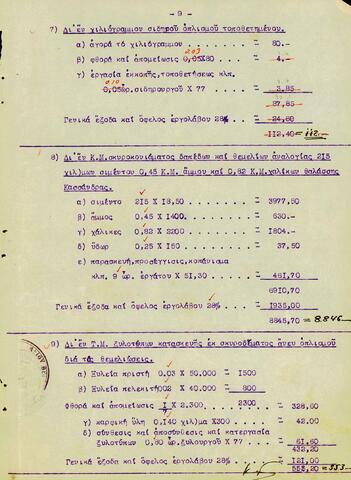 - 9 -
7) Δι'έν χιλιόγραμμον σιδηρού όπλισμού τοποθετημένου.
α) άγορά τό χιλιόγραμμον = 80.—
0.03
β) φθορά καί άπομείωσις 0,05X80 = 4.—
γ) έργασία έκκοπής,τοποθετήσεως κλπ.
0.10
0,05ωρ.σιδηρουργού X 77 = 3,85
87,85
Γενικά έξοδα καί όφελος έργολάβου 28% = 24,60
112,40 = 112.—
8) Δι'έν Κ.Μ.σκυροκονιάματος δαπέδων καί θεμελίων άναλογίας 215
χιλ)μων σιμέντου 0,45 Κ.Μ. άμμου καί 0,82 Κ.Μ.χαλίκων θαλάσσης
Κασσάνδρας.
α) σιμέντο 215 X 18,50 = 3977,50
β) άμμος 0,45 X 1400. = 630.—
γ) χάλικες 0,82 X 2200 = 1804.—
δ) ύδωρ 0,25 X 150 = 37,50
ε) παρασκευή,προσέγγισις,κοπάνισμα
κλπ. 9 ώρ. έργάτου X 51,30 = 461,70
6910,70
Γενικά έξοδα καί όφελος έργολάβου 28% = 1935,00
8845,70 = 8.846
9) Δι'έν Τ.Μ. ξυλοτύπων κατασκευής έκ σκυροδέματος άνευ όπλισμού
διά τάς θεμελιώσεις.
α) Ξυλεία πριστή 0.03 X 50.000 = 1500
β) Ξυλεία πελεκητή 002 X 40.000 = 800
Φθορά καί άπομείωσις 1/7 X 2.300 2300 = 328,60
γ) καρφική ύλη 0.140 χιλ)μα X300 = 42.00
δ) σύνθεσις καί άποσύνθεσις καί κατεργασία
ξυλοτύπων 0,80 ώρ.ξυλουργού X 77 = 61.60
432,20
Γενικά έξοδα καί όφελος έργολάβου 28% = 121,00
553,20 = 553.—